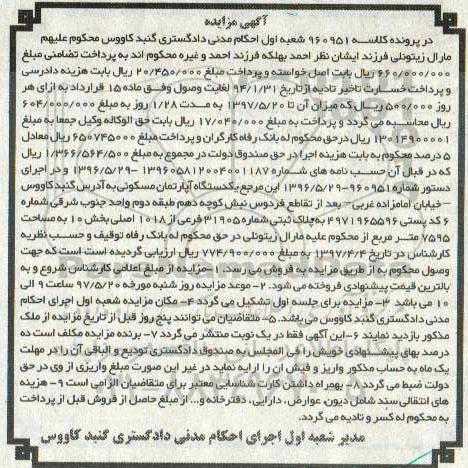 آگهی مزایده
در پرونده کلاسه ۹۶۰۹۵۱ شعبه اول احکام مدنی دادگستری گنبد کاووس محکوم علیهم
مارال زیتونلی فرزند ایشان نظر احمد بهلکه فرزند احمد و غیره محکوم اند به پرداخت تضامنی مبلغ
۶۶۰/۰۰۰/۰۰۰ ریال بابت اصل خواسته و پرداخت مبلغ ۲۰/۴۵۰/۰۰۰ ریال بابت هزینه دادرسی
و پرداخت خسارت تاخیر تادیه از تاریخ ۹۴/۱/۳۱ لغایت وصول وفق ماده ۱۵ قرارداد به ازای هر
روز ۵۰۰/۰۰۰ ریال که میزان آن تا ۱۳۹۷/۵/۲۰ به مدت ۱/۲۸ روز به مبلغ ۶۰۴/۰۰۰/۰۰۰
ریال محاسبه می گردد و پرداخت به مبلغ ۱۷/۰۴۰/۰۰۰ ریال بابت حق الوکاله وکیل جمعا به مبلغ
۱۳۰۱۴۹۰۰۰۱ ریال در حق محکوم له بانک رفاه کارگران و پرداخت مبلغ ۶۵۰۷۴۵۰۰۰ ریال معادل
۵ درصد محکوم به بابت هزینه اجرا در حق صندوق دولت در مجموع به مبلغ ۱/۳۶۶/۵۶۴/۵۰۰ ریال
که در قبال آن حسب نامه های شماره ۱۳۹۶۰۵۸۱۲۰۰۴۰۰۱۱۸۷ -۱۳۹۶/۵/۲۹ و در اجرای
دستور شماره ۹۶۰۹۵۱-۱۳۹۶/۵/۲۹ این مرجع یکدستگاه آپارتمان مسکونی به آدرس گنبد کاووس
– خیابان امامزاده غربی – بعد از تقاطع فردوس نبش کوچه دهم طبقه دوم واحد جنوب شرقی شماره
۶ کد پستی ۴۹۷۱۹۶۵۵۹۶ به پلاک ثبتی شماره ۳۱۹۰۵ فرعی از ۱۰۱۸ اصلی بخش ۱۰ به مساحت
۷۵۹۵ متر مربع از محکوم علیه مارال زیتونلی در حق محکوم له بانک رفاه توقیف و حسب نظریه
کارشناس در تاریخ ۱۳۹۷/۴/۴ به مبلغ ۷۷۴/۹۰۰/۰۰۰ ریال ارزیابی گردیده است که جهت
وصول محکوم به از طریق مزایده به فروش می رسد. ۱-مزایده از مبلغ اعلامی کارشناس شروع و به
بالاترین قیمت پیشنهادی فروخته می شود. ۲- موعد مزایده روز شنبه مورخه ۹۷/۵/۲۰ ساعت ۹ الی
۱۰ می باشد ۳-مزایده برای جلسه اول تشکیل می گردد ۴- مکان مزایده شعبه اول اجرای احکام
مدنی دادگستری گنبد کاووس می باشد. ۵- متقاضیان می توانند پنج روز قبل از تاریخ مزایده از ملک
مذکور بازدید نمایند ۶-این آگهی فقط در یک نوبت منتشر می گردد ۷- برنده مزایده مکلف است ده
درصد بهای پیشنهادی خویش را فی المجلس به صندوق دادگستری تودیع و الباقی آن را در مهلت
یک ماه به حساب مذکور واریز و فیش آن را ارایه نماید در غیر این صورت مبلغ واریزی از وی در حق
دولت ضبط می گردد ۸- بهمراه داشتن کارت شناسایی معتبر برای متقاضیان الزامی است ۹- هزینه
های انتقالی سند شامل دیون، عوارض، دارایی، دفترخانه و... از مبلغ حاصل از فروش قبل از پرداخت
به محکوم له کسر و تادیه می گردد.
مدیر شعبه اول اجرای احکام مدنی دادگستری گنبد کاووس